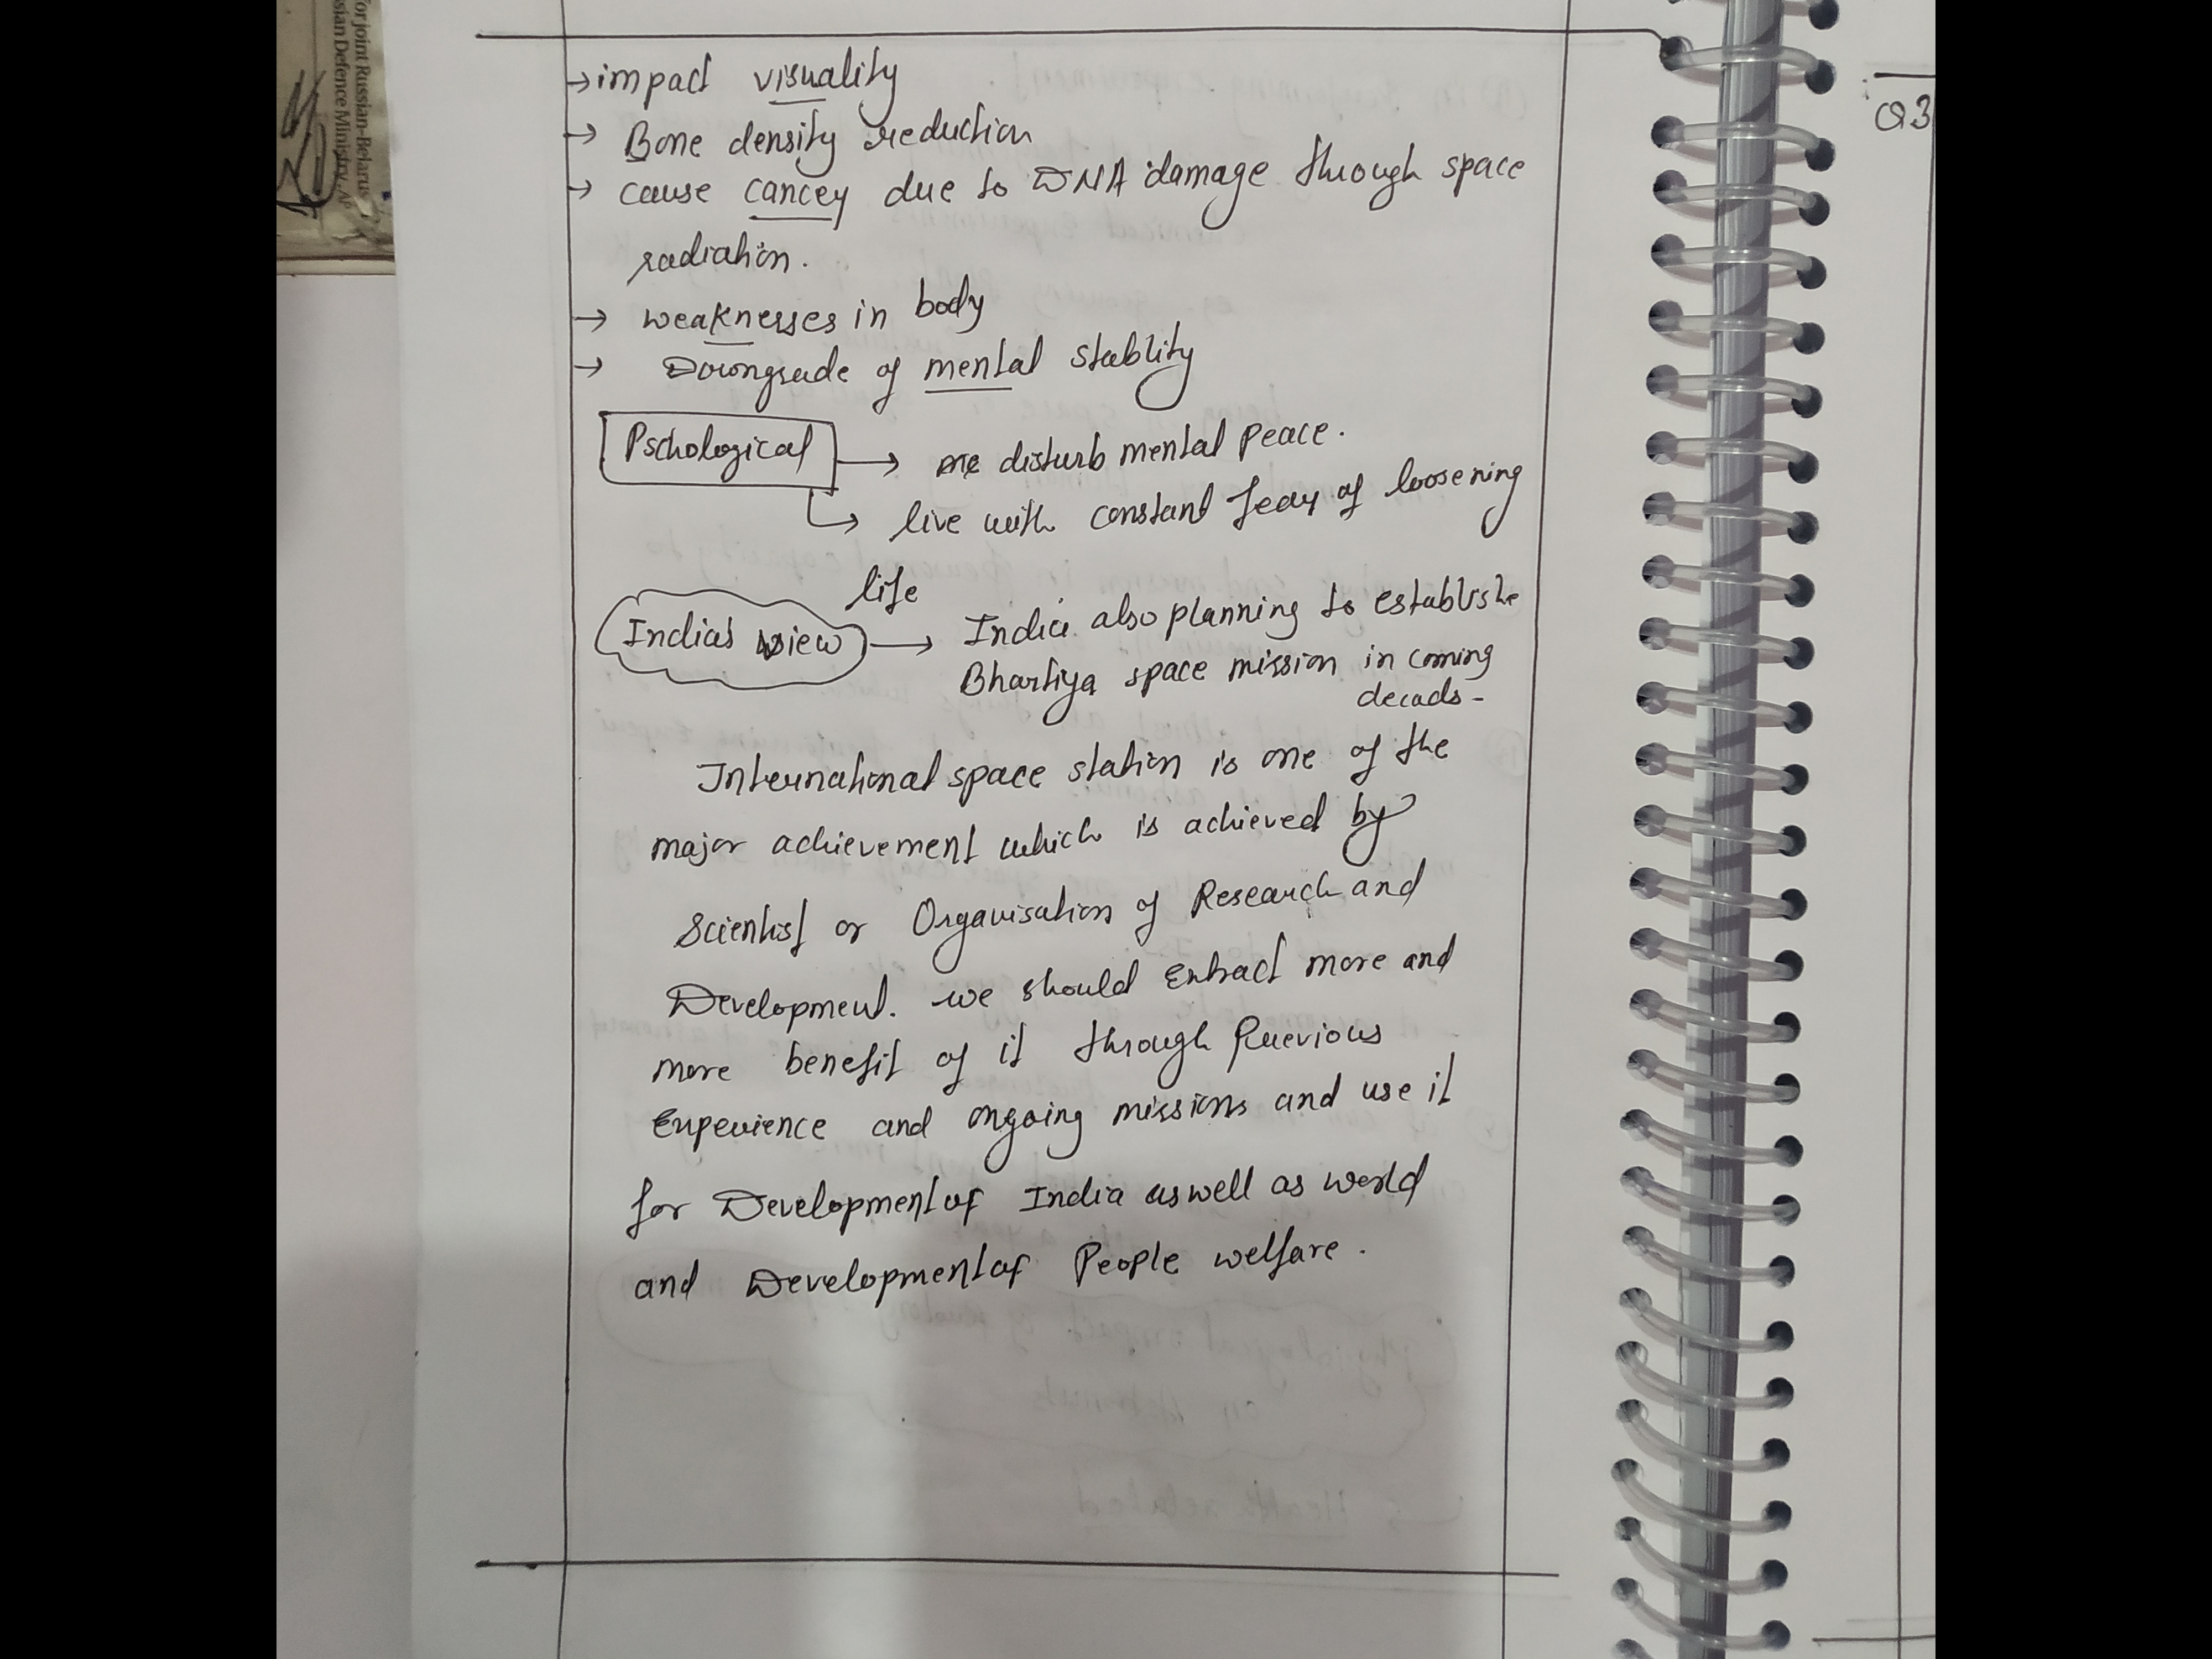 for joint Russian-Belarus
sian Defence Ministry, AP
→ impact visuality
→ Bone density reduction
→ cause cancer due to DNA damage through space
radiation.
→ weaknesses in body
→ Downgrade of mental stablity
Pschological → disturb mental peace.
↳ live with constant fear of loosening
life
India's view → India also planning to establishe
Bhartiya space mission in coming
decads-
International space station is one of the
major achievement which is achieved by
Scientist or Organisation of Research and
Development. we should Extract more and
more benefit of it through Previous
Experience and ongoing missions and use it
for Development of India as well as world
and Development of People welfare.
Q3